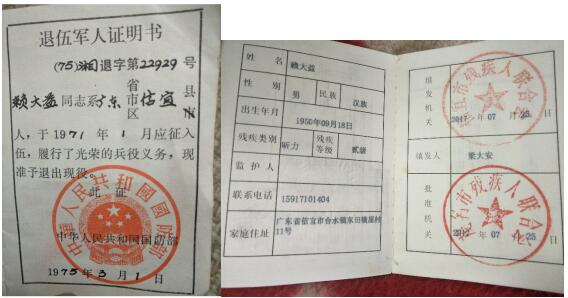 退伍军人证明书
(75)湘退字第22929号
赖大益同志系广东省市区信宜县市
人，于1971年1月应征入
伍，履行了光荣的兵役义务，现
准予退出现役。
此证
中华人民共和国国防部
中华人民共和国国防部
1975年3月1日
姓名 赖大益
性别 男 民族 汉族
出生年月 1950年09月18日
残疾类别 听力 残疾等级 贰级
监护人
联系电话 15917101404
家庭住址 广东省信宜市合水镇东田镇屋村
11号
填发机关
信宜市残疾人联合会
2017- 07 月 25
填发人 梁大安
批准机关
茂名市残疾人联合会
07 25